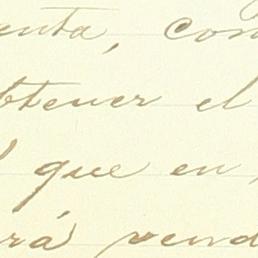 enta, con
btener el
que en
rá vend